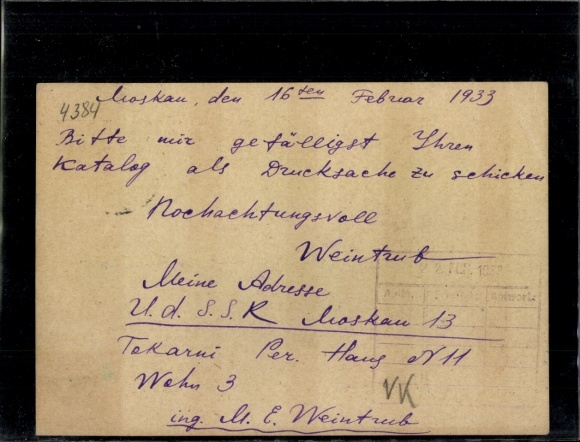 Moskau, den 16ten Februar 1933
4384
Bitte mir gefälligst Ihren
Katalog als Drucksache zu schicken
Hochachtungsvoll
Weintrub
Meine Adresse
U.d.S.S.R Moskau 13
Tokarni Per. Haus N11
Wohn 3
VK
ing. M. E. Weintrub